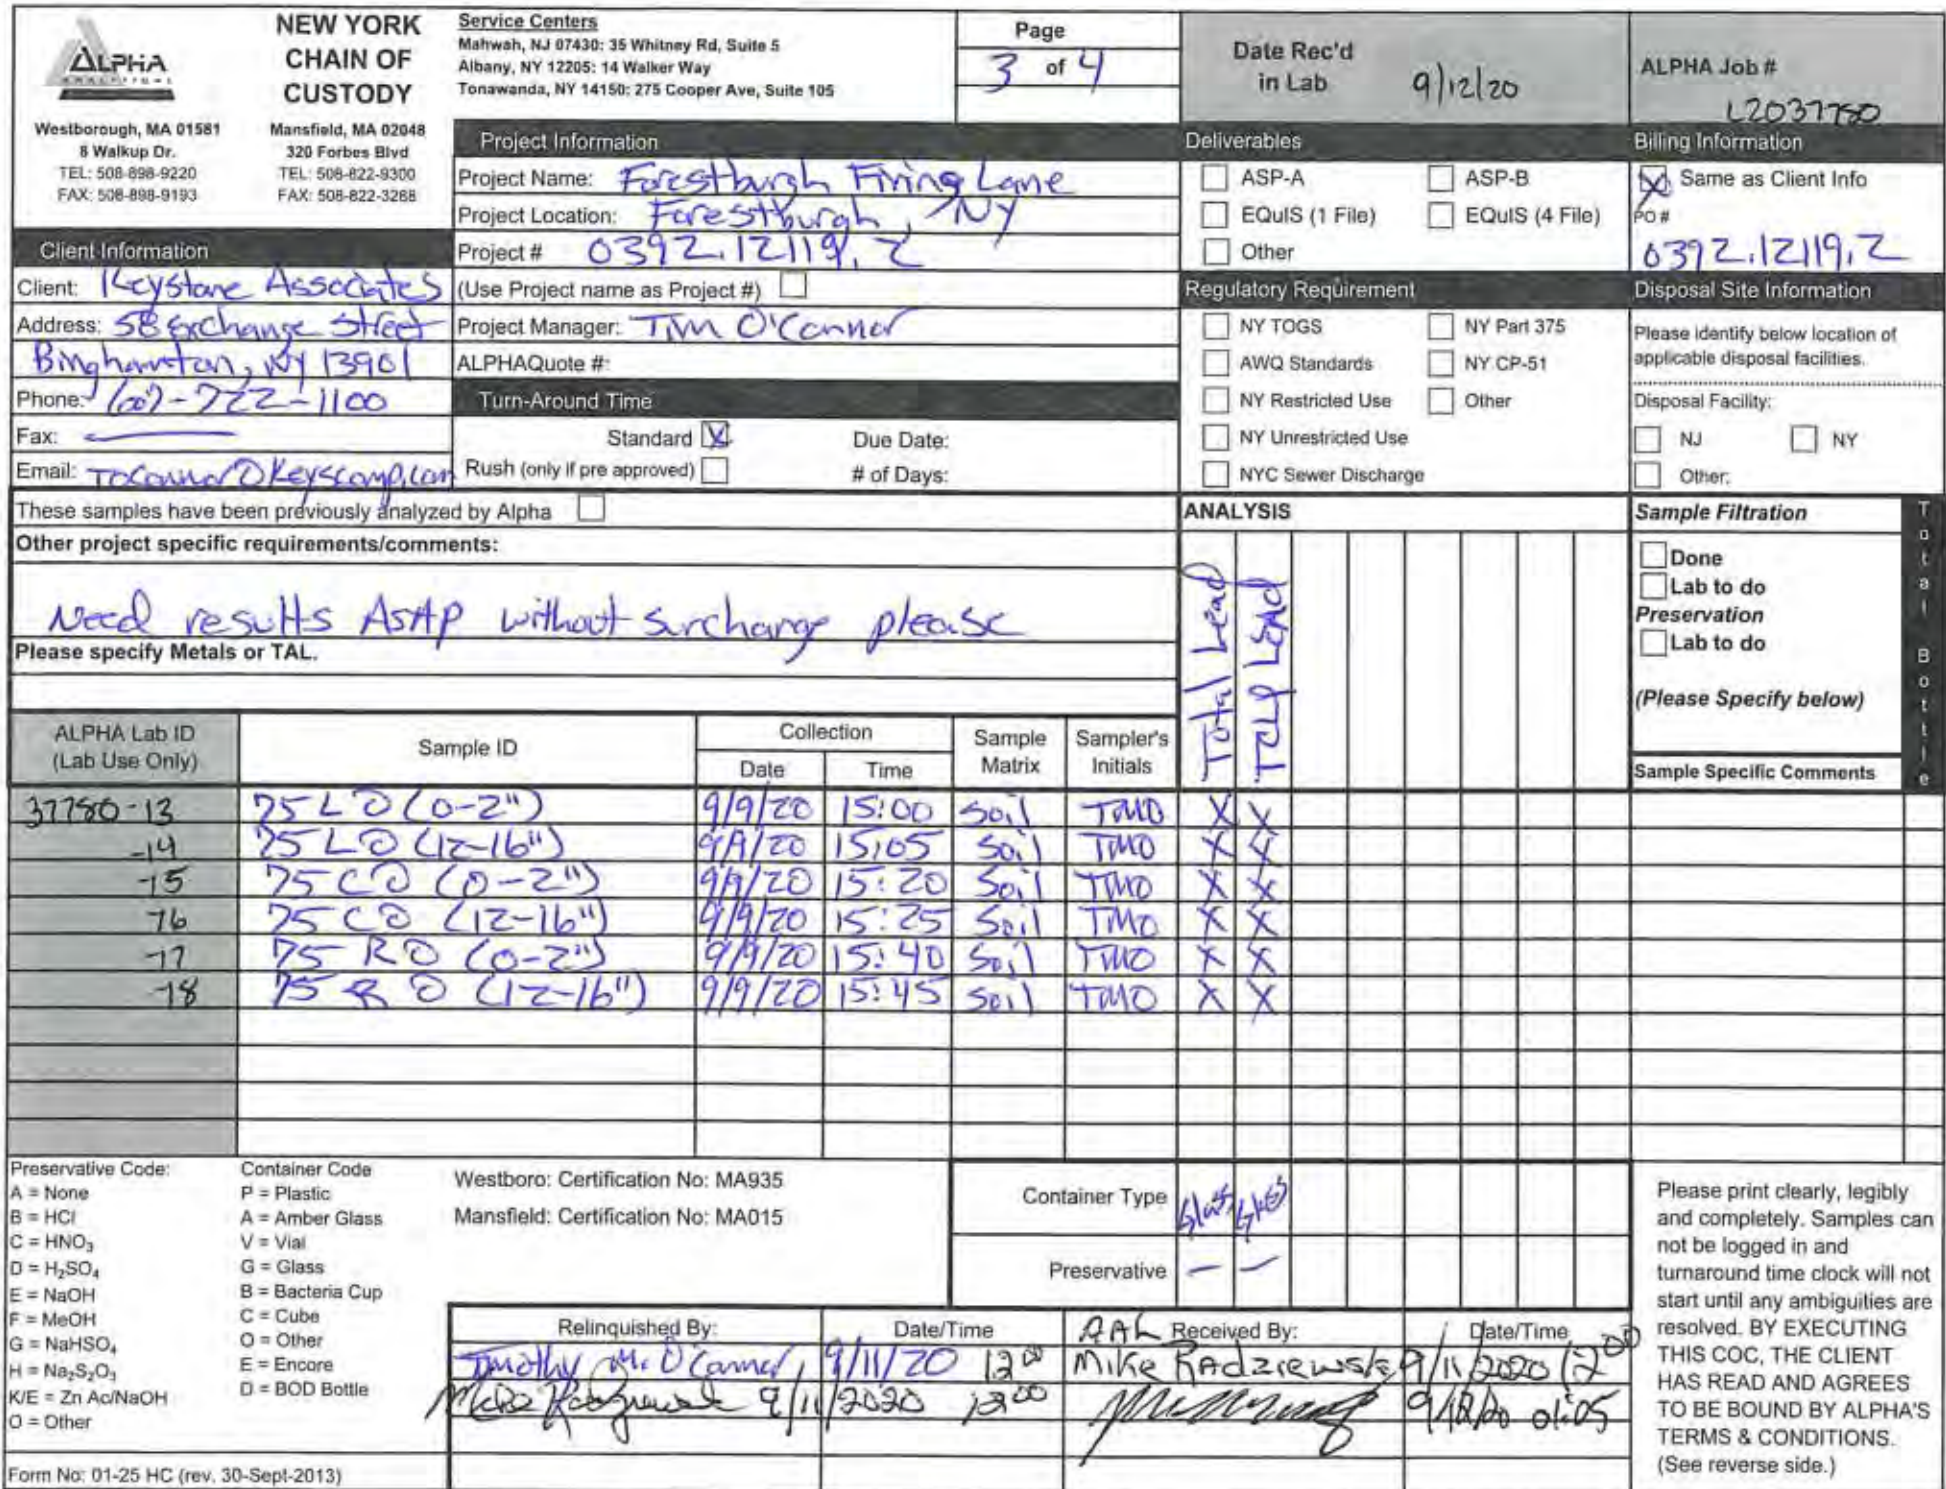 ALPHA
ANALYTICAL
NEW YORK
CHAIN OF
CUSTODY
Westborough, MA 01581
8 Walkup Dr.
TEL: 508-898-9220
FAX: 508-898-9193
Mansfield, MA 02048
320 Forbes Blvd
TEL: 508-822-9300
FAX: 508-822-3288
Service Centers
Mahwah, NJ 07430: 35 Whitney Rd, Suite 5
Albany, NY 12205: 14 Walker Way
Tonawanda, NY 14150: 275 Cooper Ave, Suite 105
Page
3 of 4
Date Rec'd
in Lab 9/12/20
ALPHA Job #
L2037780
Client Information
Client: Keystone Associates
Address: 58 Exchange Street
Binghamton, NY 13901
Phone: 607-722-1100
Fax: —
Email: TOConnor@Keyscomp.com
Project Information
Project Name: Forestburgh Firing Lane
Project Location: Forestburgh, NY
Project # 0392.12119.2
(Use Project name as Project #)
Project Manager: Tim O'Connor
ALPHAQuote #:
Turn-Around Time
Standard X Due Date:
Rush (only if pre approved) # of Days:
Deliverables
ASP-A ASP-B
EQuIS (1 File) EQuIS (4 File)
Other
Regulatory Requirement
NY TOGS NY Part 375
AWQ Standards NY CP-51
NY Restricted Use Other
NY Unrestricted Use
NYC Sewer Discharge
Billing Information
X Same as Client Info
PO #
0392.12119.2
Disposal Site Information
Please identify below location of
applicable disposal facilities.
Disposal Facility:
NJ NY
Other:
These samples have been previously analyzed by Alpha
Other project specific requirements/comments:
Need results ASAP without surcharge please
Please specify Metals or TAL.
ANALYSIS
Total Lead
TCLP LEAD
Sample Filtration
Done
Lab to do
Preservation
Lab to do
(Please Specify below)
Total Bottle
Sample Specific Comments
ALPHA Lab ID
(Lab Use Only)
Sample ID
Collection
Date Time
Sample
Matrix
Sampler's
Initials
37780-13 75 L O (0-2") 9/9/20 15:00 Soil TMO X X
-14 75 L O (12-16") 9/9/20 15:05 Soil TMO X X
-15 75 C O (0-2") 9/9/20 15:20 Soil TMO X X
-16 75 C O (12-16") 9/9/20 15:25 Soil TMO X X
-17 75 R O (0-2") 9/9/20 15:40 Soil TMO X X
-18 75 R O (12-16") 9/9/20 15:45 Soil TMO X X
Preservative Code:
A = None
B = HCl
C = HNO₃
D = H₂SO₄
E = NaOH
F = MeOH
G = NaHSO₄
H = Na₂S₂O₃
K/E = Zn Ac/NaOH
O = Other
Container Code
P = Plastic
A = Amber Glass
V = Vial
G = Glass
B = Bacteria Cup
C = Cube
O = Other
E = Encore
D = BOD Bottle
Westboro: Certification No: MA935
Mansfield: Certification No: MA015
Container Type Glass Glass
Preservative — —
Relinquished By: Date/Time AAL Received By: Date/Time
Timothy M. O'Connor, 9/11/20 12:00 Mike Radziewski 9/11/2020 12:00
9/11/2020 12:00 9/12/20 01:05
Please print clearly, legibly
and completely. Samples can
not be logged in and
turnaround time clock will not
start until any ambiguities are
resolved. BY EXECUTING
THIS COC, THE CLIENT
HAS READ AND AGREES
TO BE BOUND BY ALPHA'S
TERMS & CONDITIONS.
(See reverse side.)
Form No: 01-25 HC (rev. 30-Sept-2013)